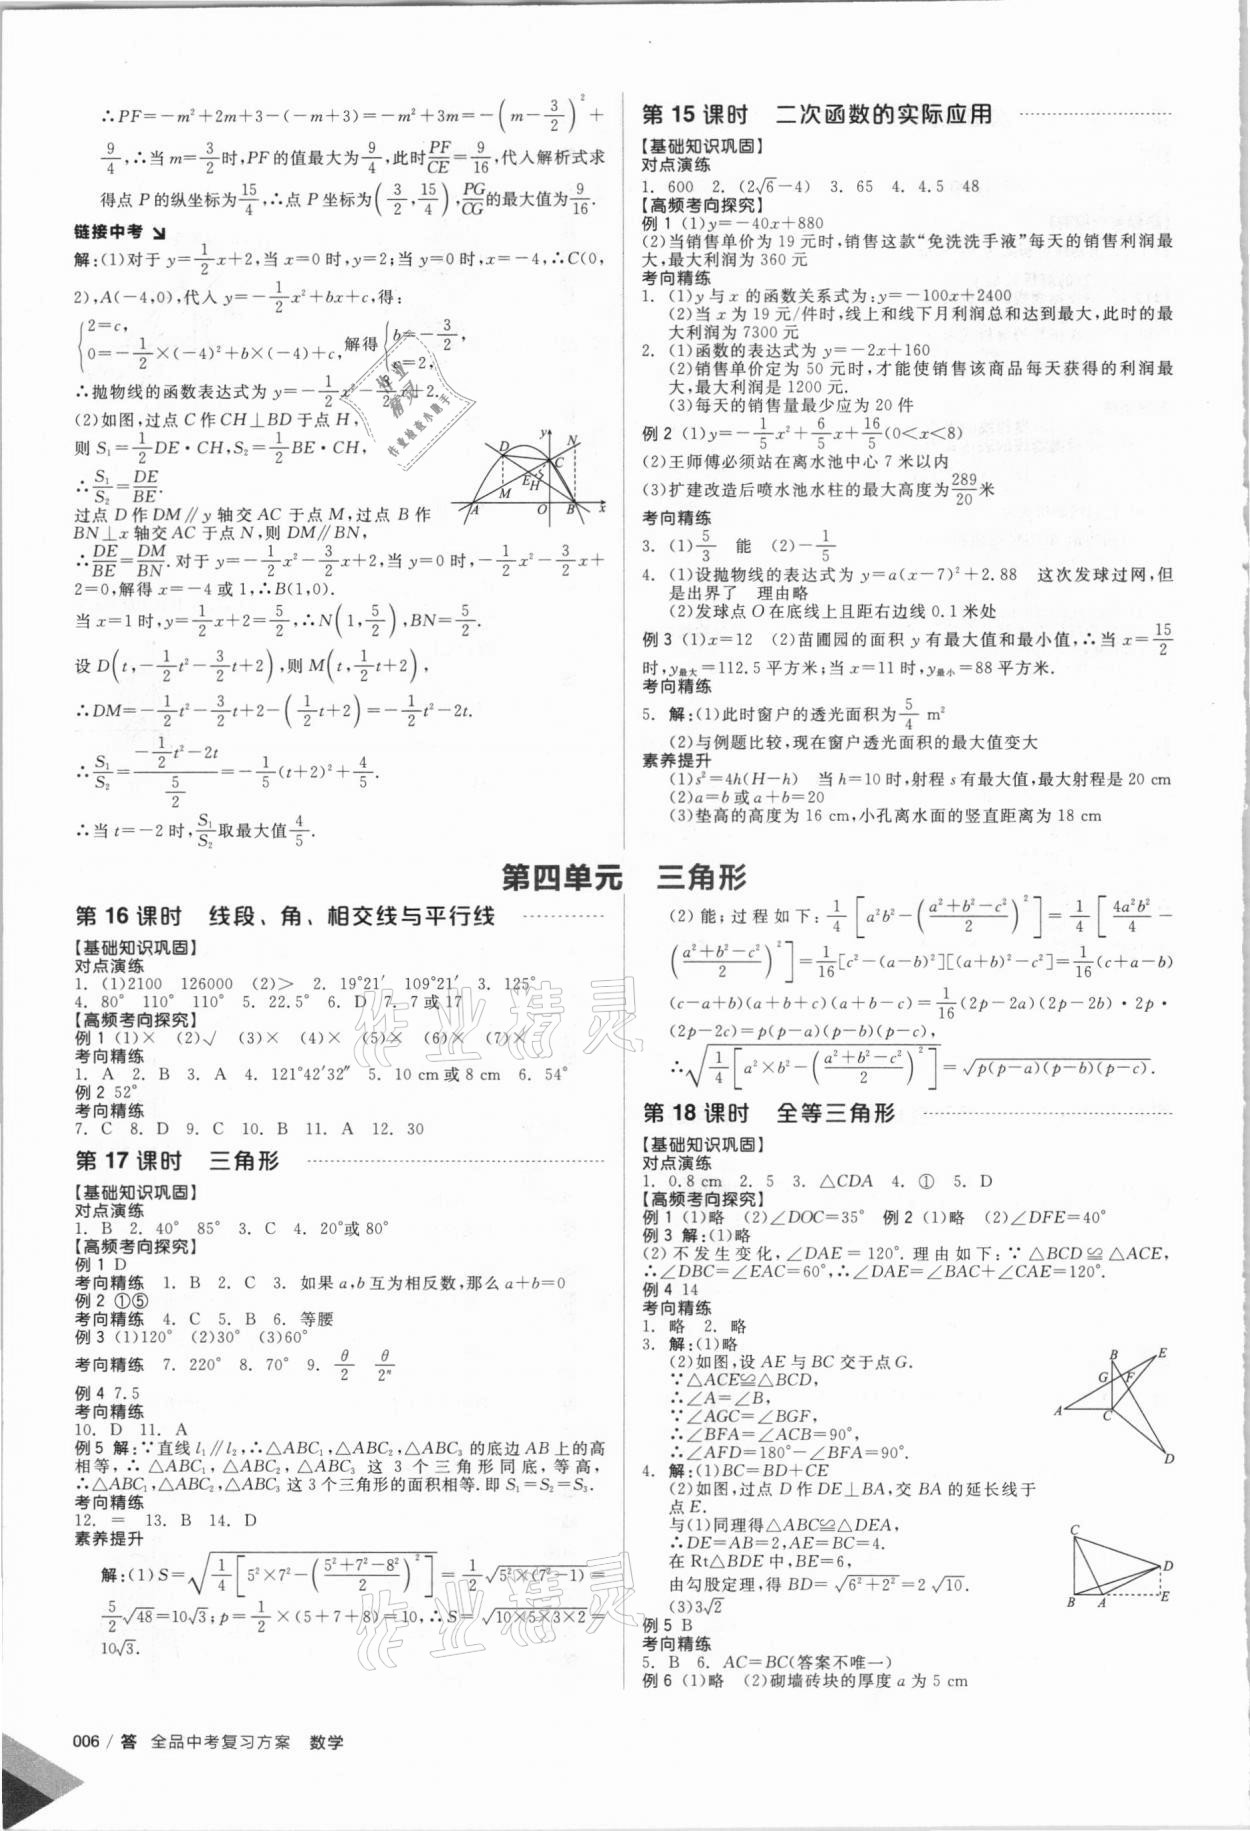 ∴PF=-m²+2m+3-(-m+3)=-m²+3m=-(m-3/2)²+
9/4,∴当 m=3/2时,PF的值最大为9/4,此时PF/CE=9/16,代入解析式求
得点 P 的纵坐标为15/4,∴点 P 坐标为(3/2,15/4),PG/CG的最大值为9/16.
链接中考 ↘
解:(1)对于 y=1/2x+2,当 x=0 时,y=2;当 y=0 时,x=-4,∴C(0,
2),A(-4,0),代入 y=-1/2x²+bx+c,得:
{2=c,
0=-1/2×(-4)²+b×(-4)+c,解得{b=-3/2,
c=2,
∴抛物线的函数表达式为 y=-1/2x²-3/2x+2.
(2)如图,过点 C 作 CH⊥BD 于点 H,
则 S₁=1/2DE·CH,S₂=1/2BE·CH,
∴S₁/S₂=DE/BE.
过点 D 作 DM∥y 轴交 AC 于点 M,过点 B 作
BN⊥x 轴交 AC 于点 N,则 DM∥BN,
∴DE/BE=DM/BN.对于 y=-1/2x²-3/2x+2,当 y=0 时,-1/2x²-3/2x+
2=0,解得 x=-4 或 1,∴B(1,0).
当 x=1 时,y=1/2x+2=5/2,∴N(1,5/2),BN=5/2.
设 D(t,-1/2t²-3/2t+2),则 M(t,1/2t+2),
∴DM=-1/2t²-3/2t+2-(1/2t+2)=-1/2t²-2t.
∴S₁/S₂=(-1/2t²-2t)/(5/2)=-1/5(t+2)²+4/5.
∴当 t=-2 时,S₁/S₂取最大值4/5.
D y N C E H M A O B x
第 15 课时 二次函数的实际应用
【基础知识巩固】
对点演练
1. 600 2. (2√6-4) 3. 65 4. 4.5 48
【高频考向探究】
例 1 (1)y=-40x+880
(2)当销售单价为 19 元时,销售这款“免洗洗手液”每天的销售利润最
大,最大利润为 360 元
考向精练
1. (1)y 与 x 的函数关系式为:y=-100x+2400
(2)当 x 为 19 元/件时,线上和线下月利润总和达到最大,此时的最
大利润为 7300 元
2. (1)函数的表达式为 y=-2x+160
(2)销售单价定为 50 元时,才能使销售该商品每天获得的利润最
大,最大利润是 1200 元.
(3)每天的销售量最少应为 20 件
例 2 (1)y=-1/5x²+6/5x+16/5(0<x<8)
(2)王师傅必须站在离水池中心 7 米以内
(3)扩建改造后喷水池水柱的最大高度为289/20米
考向精练
3. (1)5/3 能 (2)-1/5
4. (1)设抛物线的表达式为 y=a(x-7)²+2.88 这次发球过网,但
是出界了 理由略
(2)发球点 O 在底线上且距右边线 0.1 米处
例 3 (1)x=12 (2)苗圃园的面积 y 有最大值和最小值,∴当 x=15/2
时,y最大=112.5 平方米;当 x=11 时,y最小=88 平方米.
考向精练
5. 解:(1)此时窗户的透光面积为5/4 m²
(2)与例题比较,现在窗户透光面积的最大值变大
素养提升
(1)s²=4h(H-h) 当 h=10 时,射程 s 有最大值,最大射程是 20 cm
(2)a=b 或 a+b=20
(3)垫高的高度为 16 cm,小孔离水面的竖直距离为 18 cm
第四单元 三角形
第 16 课时 线段、角、相交线与平行线
【基础知识巩固】
对点演练
1. (1)2100 126000 (2)> 2. 19°21′ 109°21′ 3. 125°
4. 80° 110° 110° 5. 22.5° 6. D 7. 7 或 17
【高频考向探究】
例 1 (1)× (2)√ (3)× (4)× (5)× (6)× (7)×
考向精练
1. A 2. B 3. A 4. 121°42′32″ 5. 10 cm 或 8 cm 6. 54°
例 2 52°
考向精练
7. C 8. D 9. C 10. B 11. A 12. 30
第 17 课时 三角形
【基础知识巩固】
对点演练
1. B 2. 40° 85° 3. C 4. 20°或 80°
【高频考向探究】
例 1 D
考向精练 1. B 2. C 3. 如果 a,b 互为相反数,那么 a+b=0
例 2 ①⑤
考向精练 4. C 5. B 6. 等腰
例 3 (1)120° (2)30° (3)60°
考向精练 7. 220° 8. 70° 9. θ/2 θ/2ⁿ
例 4 7.5
考向精练
10. D 11. A
例 5 解:∵直线 l₁∥l₂,∴△ABC₁,△ABC₂,△ABC₃ 的底边 AB 上的高
相等,∴△ABC₁,△ABC₂,△ABC₃ 这 3 个三角形同底,等高,
∴△ABC₁,△ABC₂,△ABC₃ 这 3 个三角形的面积相等.即 S₁=S₂=S₃.
考向精练
12. = 13. B 14. D
素养提升
解:(1)S=√(1/4[5²×7²-((5²+7²-8²)/2)²])=1/2√(5²×(7²-1))=
5/2√48=10√3;p=1/2×(5+7+8)=10,∴S=√(10×5×3×2)=
10√3.
(2)能;过程如下:1/4[a²b²-((a²+b²-c²)/2)²]=1/4[4a²b²/4-
((a²+b²-c²)/2)²]=1/16[c²-(a-b)²][(a+b)²-c²]=1/16(c+a-b)
(c-a+b)(a+b+c)(a+b-c)=1/16(2p-2a)(2p-2b)·2p·
(2p-2c)=p(p-a)(p-b)(p-c),
∴√(1/4[a²×b²-((a²+b²-c²)/2)²])=√(p(p-a)(p-b)(p-c)).
第 18 课时 全等三角形
【基础知识巩固】
对点演练
1. 0.8 cm 2. 5 3. △CDA 4. ① 5. D
【高频考向探究】
例 1 (1)略 (2)∠DOC=35° 例 2 (1)略 (2)∠DFE=40°
例 3 解:(1)略
(2)不发生变化,∠DAE=120°.理由如下:∵△BCD≌△ACE,
∴∠DBC=∠EAC=60°,∴∠DAE=∠BAC+∠CAE=120°.
例 4 14
考向精练
1. 略 2. 略
3. 解:(1)略
(2)如图,设 AE 与 BC 交于点 G.
∵△ACE≌△BCD,
∴∠A=∠B,
∵∠AGC=∠BGF,
∴∠BFA=∠ACB=90°,
∴∠AFD=180°-∠BFA=90°.
B E G F A C D
4. 解:(1)BC=BD+CE
(2)如图,过点 D 作 DE⊥BA,交 BA 的延长线于
点 E.
与(1)同理得△ABC≌△DEA,
∴DE=AB=2,AE=BC=4.
在 Rt△BDE 中,BE=6,
由勾股定理,得 BD=√(6²+2²)=2√10.
(3)3√2
C D B A E
例 5 B
考向精练
5. B 6. AC=BC(答案不唯一)
例 6 (1)略 (2)砌墙砖块的厚度 a 为 5 cm
006 / 答 全品中考复习方案 数学
作业精灵
作业精灵
作业精灵
作业检查小助手